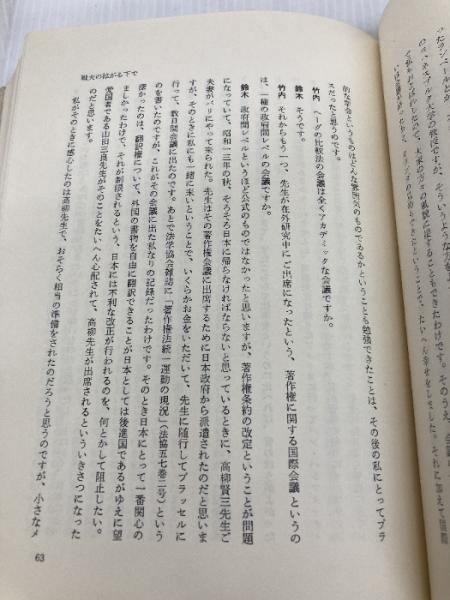 戦火の拡がる下で
的な学会というものはどんな雰囲気のものであるかということも勉強できたことは、その後の私にとってプラ
スだったと思うのです。
竹内 ヘーグの比較法の会議は全くアカデミックな会議ですか。
鈴木 そうです。
竹内 それからもう一つ、先生が在外研究中にご出席になったという、著作権に関する国際会議というの
は、一種の政府間レベルの会議ですか。
鈴木 政府間レベルというほど公式のものではなかったと思いますが、著作権条約の改定ということが問題
になっていて、昭和一三年の秋、そろそろ日本に帰らなければならないと思っているときに、高柳賢三先生ご
夫妻がパリにやって来られた。先生はその著作権会議に出席するために日本政府から派遣されたのだと思いま
すが、そのときに私にも一緒に来いということで、いくらかお金をいただいて、先生に随行してブラッセルに
行って、数日間会議に出たのです。あとで法学協会雑誌に「著作権法統一運動の現況」(法協五七巻二号)という
のを書いたのですが、これがその会議に出た私なりの記録だったわけです。そのとき日本にとって一番関心の
深かったのは、翻訳権について、外国の書物を自由に翻訳できることが日本としては後進国であるがゆえに望
ましかったわけで、それが制限されるという、日本には不利な改正が行われるのを、何とかして阻止したい。
愛国者である山田三良先生がそのことをたいへん心配されて、高柳先生が出席されるといういきさつになった
のだと思います。
私がそのときに感心したのは高柳先生で、おそらく相当の準備をされたのだろうと思うのですが、小さなメ
63